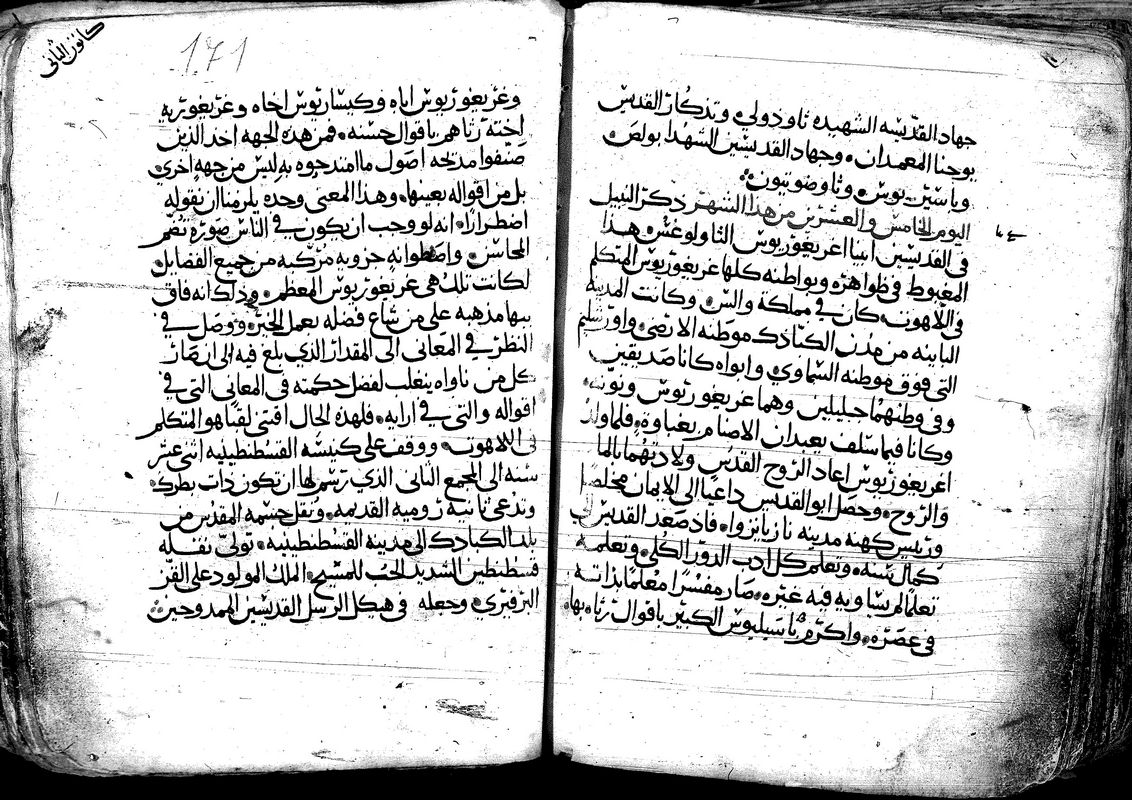 جهاد القديسه الشهيده ثاوذولي وتذكار القديس
يوحنا المعمدان وجهاد القديسين الشهدا بولص
وباسيريوس وثاوضوتيون
اليوم الخامس والعشرين من هذا الشهر ذكر النبيل
في القديسين ابينا اغريغوريوس الثاولوغس هذا
المغبوط في ظواهره وبواطنه كلها غريغوريوس المتكلم
في اللاهوت كان في مملكة والس وكانت المدينه
الثانيه من مدن الكبادك موطنه الارضي واورشليم
التي فوق موطنه السماوي وابواه كانا صديقين
وفي وطنهما جليلين وهما غريغوريوس ونونه
وكانا فيما سلف يعبدان الاصنام بغباوه فلما ولد
اغريغوريوس اعاد الروح القدس ولادتهما بالما
والروح وحصل ابو القديس داعيا الي الايمان مخلصا
وريس كهنه مدينه نازيانزوا فاذ صعد القديس الي
كمال سنه وتعلم كل ادب الدور الكلي وتعلمه
تعلما لم يساويه فيه غيره صار مفسرا معلما بذاته
في عصره واكرم باسيليوس الكبير باقوال رثاه بها
كانون الثاني
171
وغريغوريوس اباه وكيساريوس اخاه وغريغوريه
اخته رثاهم باقوال حسنه فمن هذه الجهه اخذ الذين
صنفوا مدحه اصول ما امتدحوه به ليس من جهه اخري
بل من اقواله بعينها وهذا المعني وحده يلزمنا ان نقوله
اضطرارا انه لو وجب ان يكون في الناس صوره تضم
المحاسن واصطوانه حزويه مركبه من جميع الفضايل
لكانت تلك هي غريغوريوس المعظم وذلك انه فاق
ببها مذهبه علي من شاع فضله بعمل الخير ووصل في
النظر في المعاني الي المقدار الذي بلغ فيه الي ان صار
كل من ناواه ينغلب لفضل حكمته في المعاني التي في
اقواله والتي في ارايه فلهذه الحال اقتني لقبا هو المتكلم
في اللاهوت ووقف علي كنيسه القسطنطينيه اثني عشر
سنه الي المجمع الثاني الذي رسم لها ان تكون ذات بطرك
وتدعي ثانيه روميه القديمه ونقل جسمه المقدس من
بلد الكبادك الي مدينه القسطنطينيه تولي نقله
قسطنطين الشديد الحب للمسيح الملك المولود علي القز
البرفيري وجعله في هيكل الرسل القديسين الممدوحين